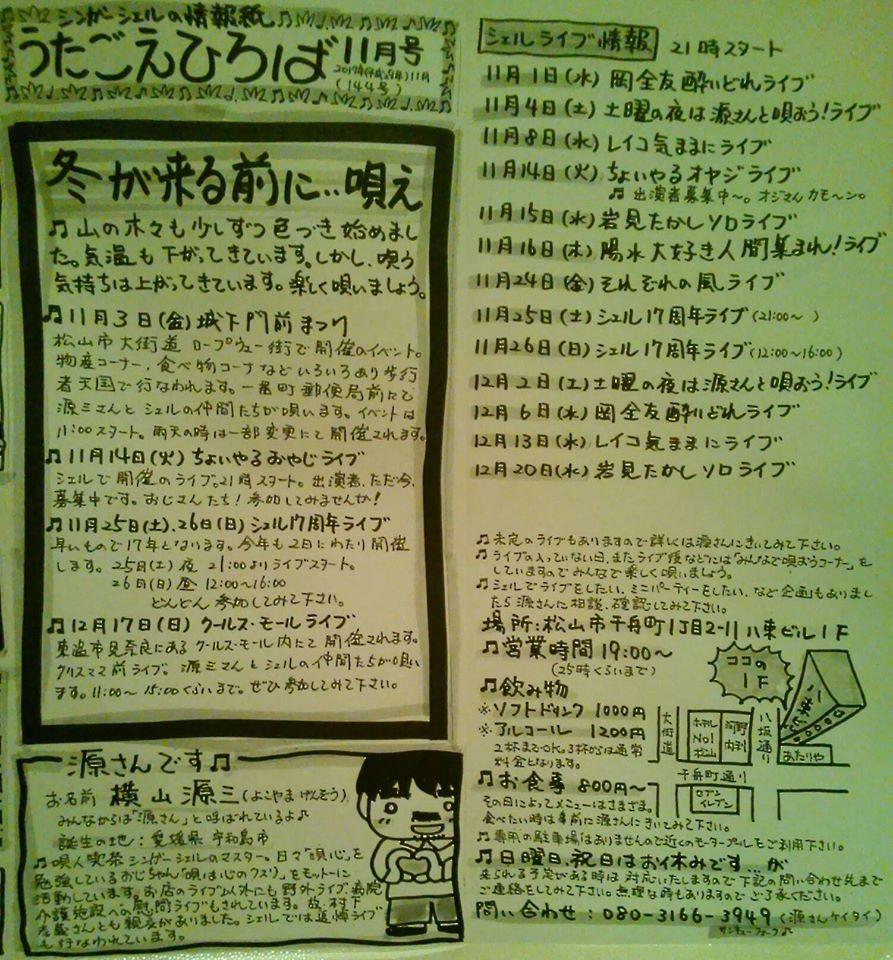 シンガーシェルの情報紙
うたごえひろば 11月号
2017年(平成29年)11月
(144号)
冬が来る前に‥唄え
♫山の木々も少しずつ色づき始めまし
た。気温も下がってきています。しかし、唄う
気持ちは上がってきています。楽しく唄いましょう。
♫11月3日(金)城下門前まつり
松山市大街道 ロープウェー街で開催のイベント。
物産コーナー、食べ物コーナなどいろいろあり歩行
者天国で行なわれます。一番町郵便局前にて
源三さんとシェルの仲間たちが唄います。イベントは
11:00スタート。雨天の時は一部変更にて開催されます。
♫11月14日(火)ちょいやるおやじライブ
シェルで開催のライブ。21時スタート。出演者、ただ今、
募集中です。おじさんたち!参加してみませんか!
♫11月25日(土)、26日(日)シェル17周年ライブ
早いもので17年となります。今年も2日にわたり開催
します。25日(土)夜 21:00よりライブスタート。
26日(日)昼 12:00~16:00
どんどん参加してみて下さい。
♫12月17日(日)クールス・モールライブ
東温市見奈良にあるクールス・モール内にて開催されます。
クリスマス前ライブ。源三さんとシェルの仲間たちが唄い
ます。11:00~15:00くらいまで。ぜひ参加してみて下さい。
源さんです♫
お名前 横山源三(よこやまげんぞう)
みんなからは「源さん」と呼ばれているよ♪
誕生の地:愛媛県宇和島市
♫唄人喫茶シンガーシェルのマスター。日々「唄心」を
勉強しているおじちゃん「唄は心のクスリ」をモットーに
活動しています。お店のライブ以外にも野外ライブ、病院
介護施設への慰問ライブもされています。故・村下
孝蔵さんとも親交がありました。シェルでは追悼ライブ
も行なわれています。
シェルライブ情報 21時スタート
11月1日(水)岡全友酔いどれライブ
11月4日(土)土曜の夜は源さんと唄おう!ライブ
11月8日(水)レイコ気ままにライブ
11月14日(火)ちょいやるオヤジライブ
♫出演者募集中~。オジさんカモ~ン。
11月15日(水)岩見たかしソロライブ
11月16日(木)陽水大好き人間集まれ!ライブ
11月24日(金)それぞれの風ライブ
11月25日(土)シェル17周年ライブ(21:00~ )
11月26日(日)シェル17周年ライブ(12:00~16:00)
12月2日(土)土曜の夜は源さんと唄おう!ライブ
12月6日(水)岡全友酔いどれライブ
12月13日(水)レイコ気ままにライブ
12月20日(水)岩見たかしソロライブ
♫未定のライブもありますので詳しくは源さんにきいてみて下さい。
♫ライブの入っていない日、またライブ後などには「みんなで唄おうコーナー」を
していますのでみんなで楽しく唄いましょう。
♫シェルでライブをしたい、ミニパーティーをしたい、など企画もありまし
たら源さんに相談、確認してみて下さい。
場所:松山市千舟町1丁目2-11 八束ビル1F
♫営業時間 19:00~
(25時くらいまで)
♫飲み物
※ソフトドリンク 1000円
※アルコール 1200円
2杯までOK。3杯からは通常
料金となります。
♫お食事 800円~
その日によってメニューはさまざま。
食べたい時は事前に源さんにきいてみて下さい。
ココの
1F
八束ビル
大街道
ホテル
No.1
松山
河野
内科
八坂通り
あたりや
千舟町通り
セブン
イレブン
♫専用の駐車場はありませんので近くのモータープールをご利用下さい。
♫日曜日、祝日はお休みです…が
来られる予定がある時は対応いたしますので下記の問い合わせ先まで
ご連絡をしてみて下さい。無理な時もありますのでご了承ください。
問い合わせ:080-3166-3949(源さんケイタイ)
サンキューフォーク♪